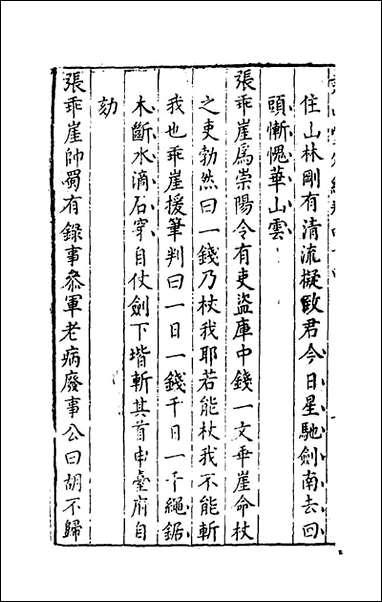 住山林剛有清流擬致君今日星馳劍南去回
頭慚愧華山雲
張乖崖爲崇陽令有吏盜庫中錢一文乖崖命杖
之吏勃然曰一錢乃杖我耶若能杖我不能斬
我也乖崖援筆判曰一日一錢千日一千繩鋸
木斷水滴石穿自仗劍下堦斬其首申臺府自
劾
張乖崖帥蜀有錄事參軍老病廢事公曰胡不歸